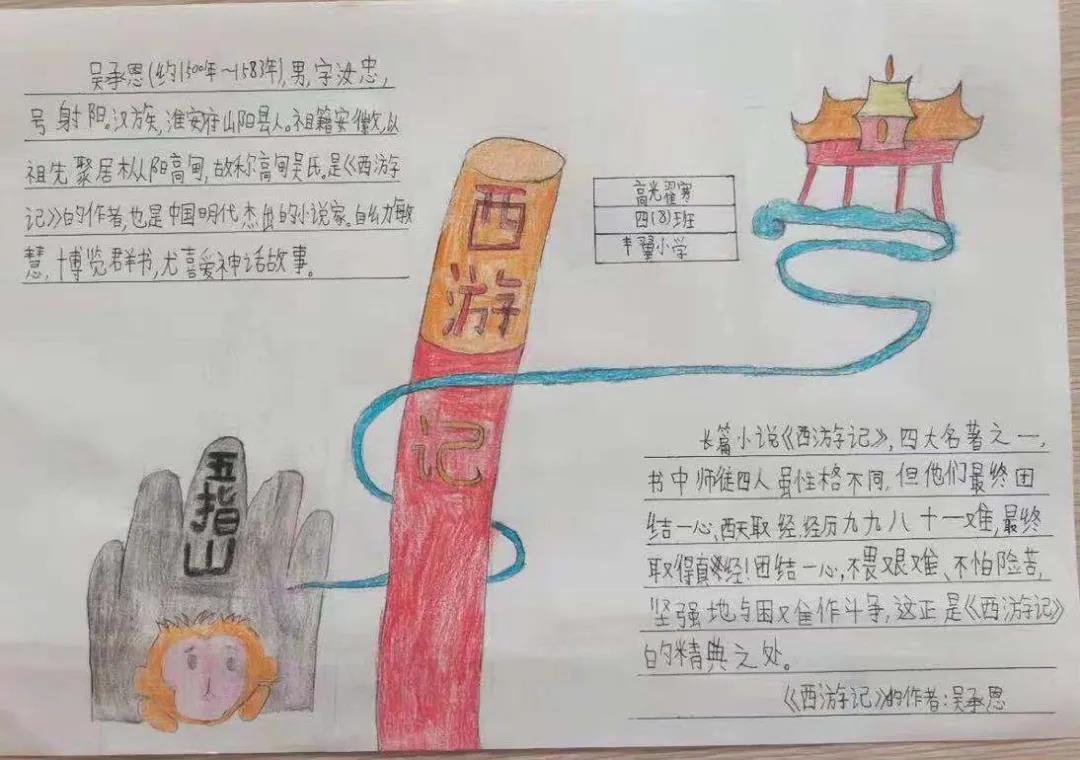 吴承恩(约1500年~1583年),男,字汝忠,
号射阳。汉族,淮安府山阳县人。祖籍安徽,以
祖先聚居枞阳高甸,故称高甸吴氏。是《西游
记》的作者,也是中国明代杰出的小说家。自幼敏
慧,博览群书,尤喜爱神话故事。
西
游
记
高光耀
四(8)班
丰翼小学
五
指
山
长篇小说《西游记》,四大名著之一,
书中师徒四人虽性格不同,但他们最终团
结一心,西天取经.经历九九八十一难,最终
取得真经!团结一心,不畏艰难、不怕险苦,
坚强地与困难作斗争,这正是《西游记》
的精典之处。
《西游记》的作者:吴承恩